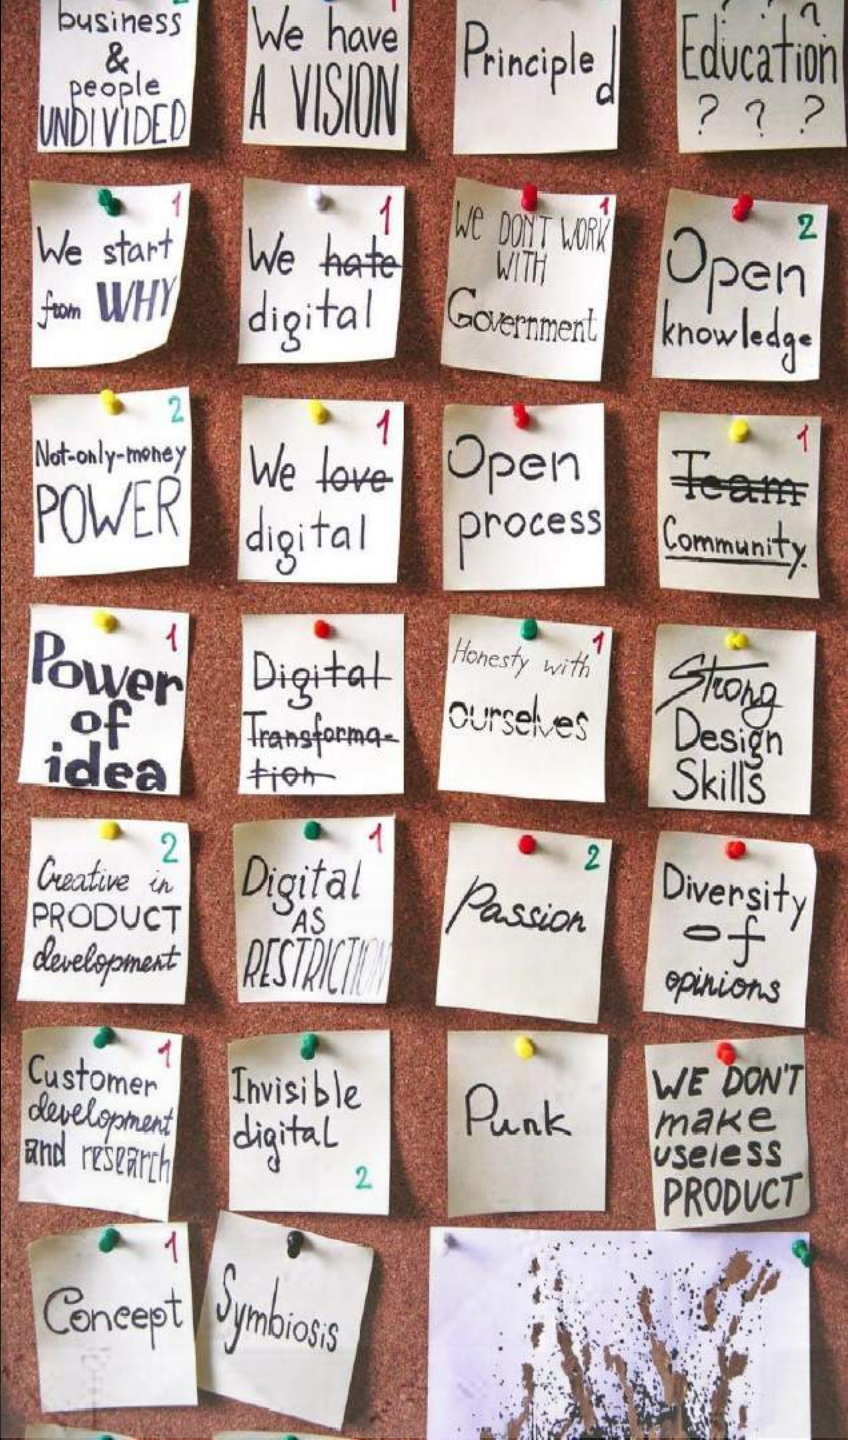 business
&
people
UNDIVIDED
We have
A VISION
Principled
Education
? ? ?
1
We start
from WHY
1
We hate
digital
1
WE DON'T WORK
WITH
Government
2
Open
knowledge
2
Not-only-money
POWER
1
We love
digital
Open
process
1
Team
Community.
1
Power
of
idea
Digital
Transforma-
tion
1
Honesty with
ourselves
Strong
Design
Skills
2
Creative in
PRODUCT
development
1
Digital
AS
RESTRICTION
2
Passion
Diversity
of
opinions
1
Customer
development
and research
Invisible
digital
2
Punk
WE DON'T
make
useless
PRODUCT
1
Concept
Symbiosis